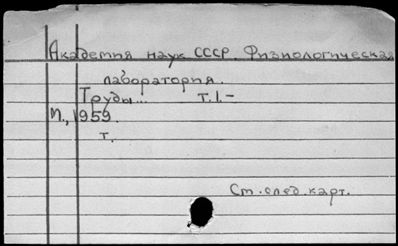 Академия наук СССР. Физиологическая
лаборатория.
Труды... т.1.-
М., 1959.
т.
См. след. карт.